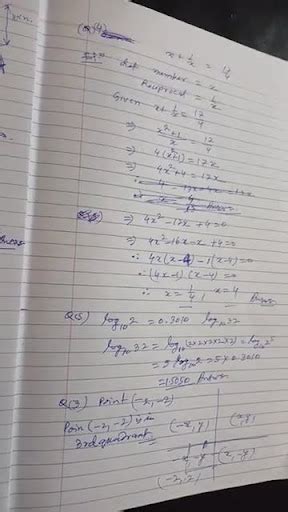 Q(4)
x + 1/x = 17/4
let number = x
Reciprocal = 1/x
Given x + 1/x = 17/4
⇒ x²+1/x = 17/4
⇒ 4(x²+1) = 17x
⇒ 4x²+4 = 17x
⇒ 4x²-17x+4=0
⇒ 4x²-16x-x+4=0
∴ 4x(x-4)-1(x-4)=0
∴ (4x-1)(x-4)=0
∴ x = 1/4, x=4 Answer
Q(5) log₁₀2 = 0.3010 log₁₀32
log₁₀32 = log₁₀(2x2x2x2x2) = log₁₀2⁵
= 5 log₁₀2 = 5x0.3010
= 1.5050 Answer
Q(3) Print (-2,-2)
Poin (-2,-2) is
3rd quadrant
(-x, y) (x, y)
-x -y (x, -y)
(-2, 2)